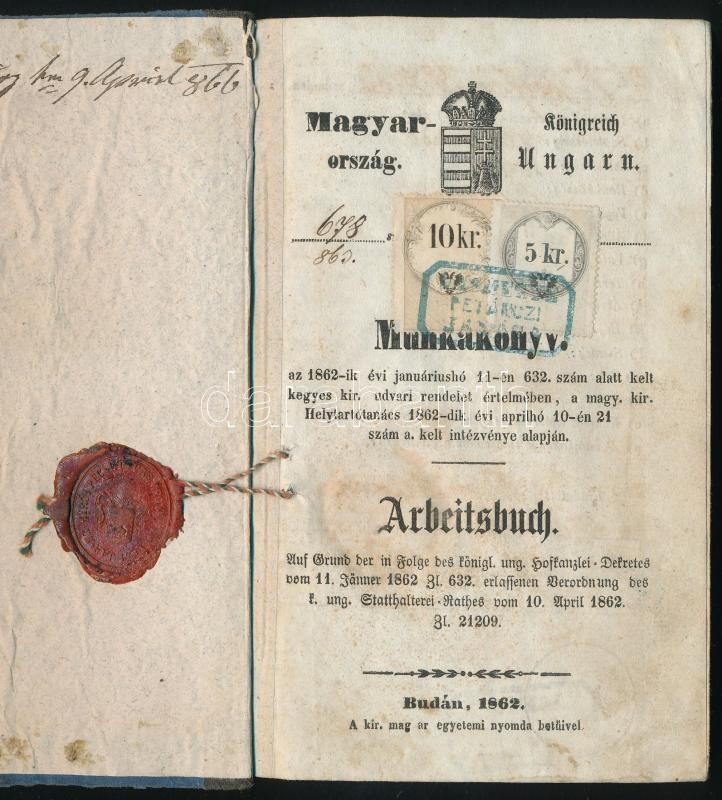 km 9. April 866
Magyar-
ország.
Königreich
Ungarn.
678
863.
10 kr.
5 kr.
Munkakönyv.
az 1862-ik évi januáriushó 11-én 632. szám alatt kelt
kegyes kir. udvari rendelet értelmében, a magy. kir.
Helytartótanács 1862-dik évi aprilhó 10-én 21
szám a. kelt intézvénye alapján.
Arbeitsbuch.
Auf Grund der in Folge des königl. ung. Hofkanzlei-Dekretes
vom 11. Jänner 1862 Zl. 632. erlassenen Verordnung des
k. ung. Statthalterei-Rathes vom 10. April 1862.
Zl. 21209.
Budán, 1862.
A kir. mag ar egyetemi nyomda betüivel.